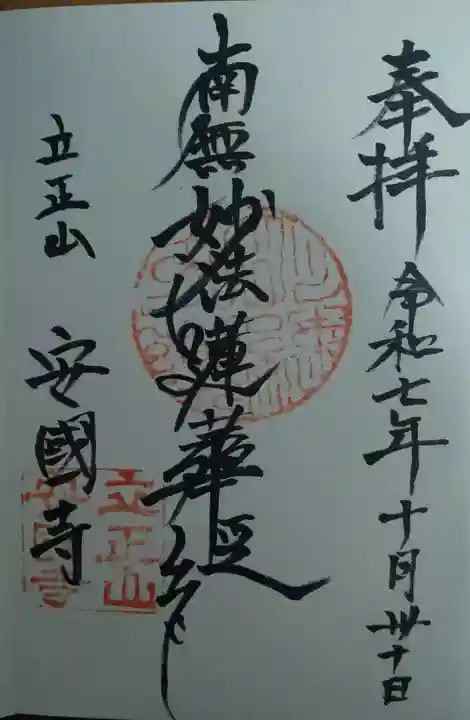 奉拝 令和七年十月卅十日
南無妙法蓮華経
立正山 安國寺
立正山
安国寺